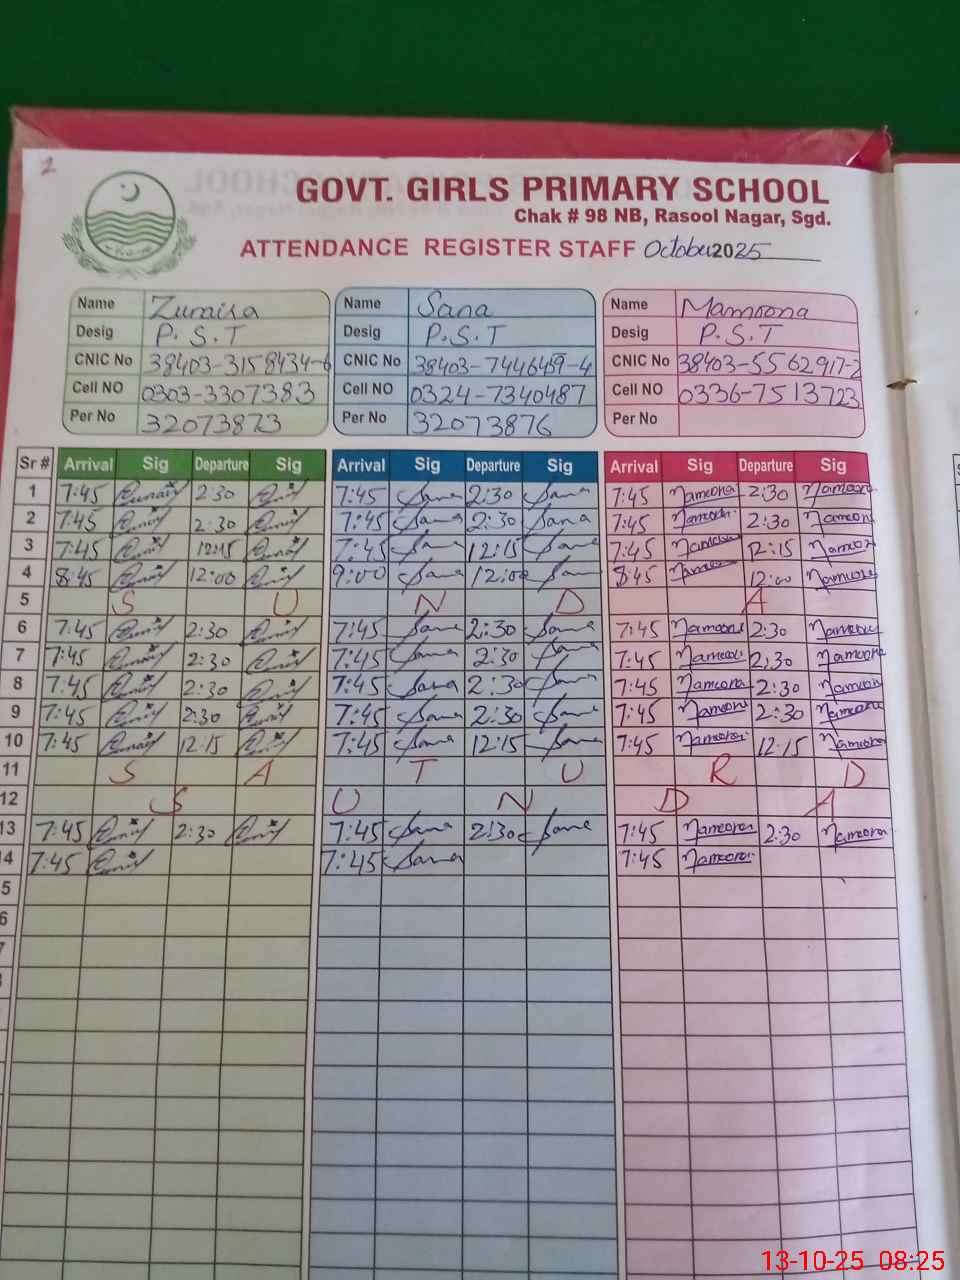 2
GOVT. GIRLS PRIMARY SCHOOL
Chak # 98 NB, Rasool Nagar, Sgd.
ATTENDANCE REGISTER STAFF October 2025
Name Zunaira Name Sana Name Mamoona
Desig P.S.T Desig P.S.T Desig P.S.T
CNIC No 38403-3158434-6 CNIC No 38403-7446489-4 CNIC No 38403-5562917-2
Cell NO 0303-3307383 Cell NO 0324-7340487 Cell NO 0336-7513723
Per No 32073873 Per No 32073876 Per No
Sr # Arrival Sig Departure Sig Arrival Sig Departure Sig Arrival Sig Departure Sig
1 7:45 2:30 7:45 Sana 2:30 Sana 7:45 Mamoona 2:30 Mamoona
2 7:45 2:30 7:45 Sana 2:30 Sana 7:45 Mamoona 2:30 Mamoona
3 7:45 12:15 7:45 Sana 12:15 Sana 7:45 Mamoona 12:15 Mamoona
4 8:45 12:00 9:00 Sana 12:00 Sana 8:45 Mamoona 12:00 Mamoona
5 S U N D A
6 7:45 2:30 7:45 Sana 2:30 Sana 7:45 Mamoona 2:30 Mamoona
7 7:45 2:30 7:45 Sana 2:30 Sana 7:45 Mamoona 2:30 Mamoona
8 7:45 2:30 7:45 Sana 2:30 Sana 7:45 Mamoona 2:30 Mamoona
9 7:45 2:30 7:45 Sana 2:30 Sana 7:45 Mamoona 2:30 Mamoona
10 7:45 12:15 7:45 Sana 12:15 Sana 7:45 Mamoona 12:15 Mamoona
11 S A T U R D
12 S U N D A
13 7:45 2:30 7:45 Sana 2:30 Sana 7:45 Mamoona 2:30 Mamoona
14 7:45 7:45 Sana 7:45 Mamoona
5
6
7
13-10-25 08:25